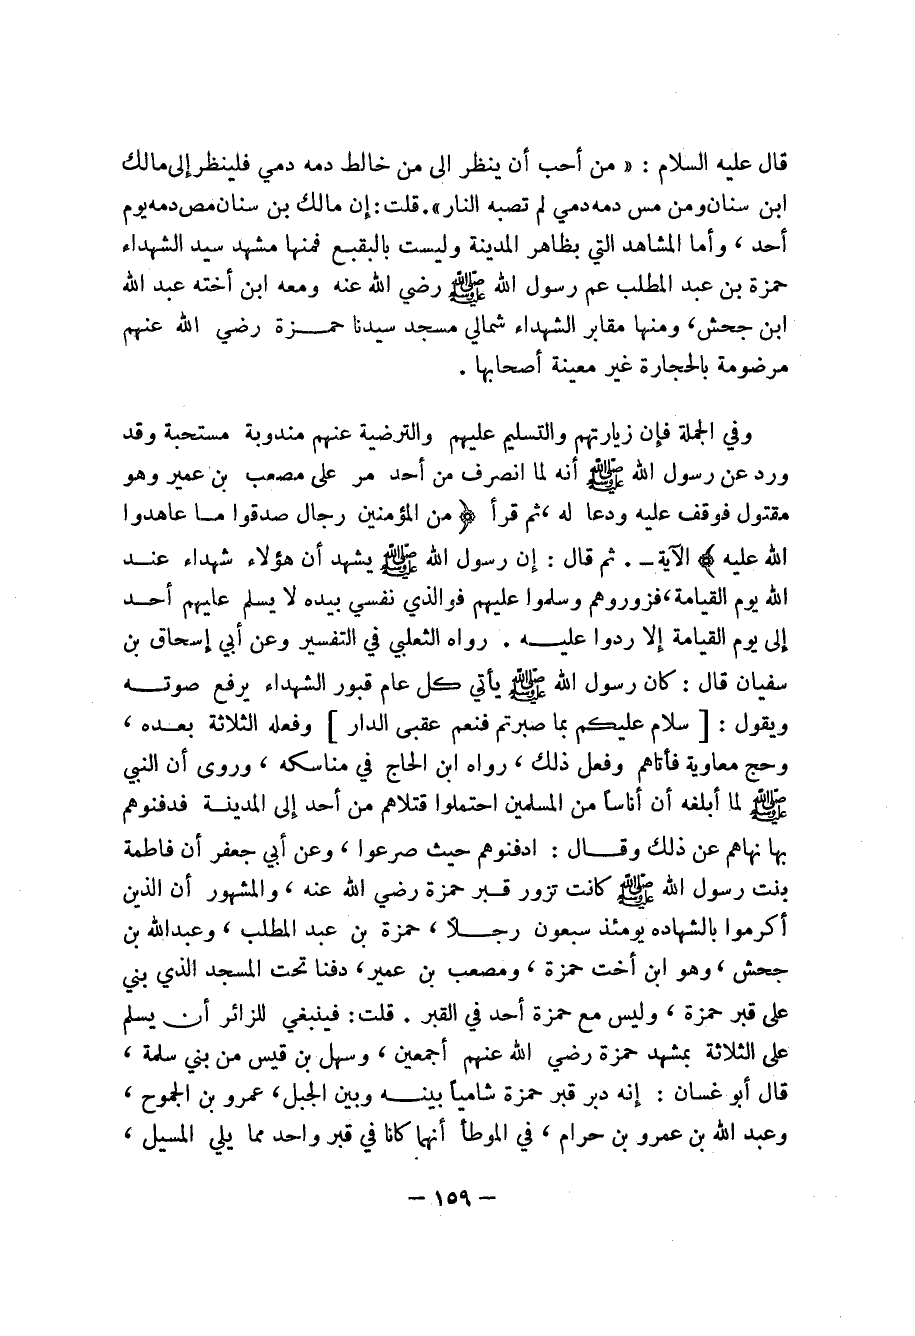 قال عليه السلام : « من أحب أن ينظر الى من خالط دمه دمي فلينظر إلى مالك
ابن سنان ومن مس دمه دمي لم تصبه النار». قلت : إن مالك بن سنان مص دمه يوم
أحد ، وأما المشاهد التي بظاهر المدينة وليست بالبقيع فمنها مشهد سيد الشهداء
حمزة بن عبد المطلب عم رسول الله ﷺ رضي الله عنه ومعه ابن أخته عبد الله
ابن جحش، ومنها مقابر الشهداء شمالي مسجد سيدنا حمزة رضي الله عنهم
مرضومة بالحجارة غير معينة أصحابها .
وفي الجملة فإن زيارتهم والتسليم عليهم والترضية عنهم مندوبة مستحبة وقد
ورد عن رسول الله ﷺ أنه لما انصرف من أحد مر على مصعب بن عمير وهو
مقتول فوقف عليه ودعا له ، ثم قرأ ﴿ من المؤمنين رجال صدقوا ما عاهدوا
الله عليه ﴾ الآية – . ثم قال : إن رسول الله ﷺ يشهد أن هؤلاء شهداء عند
الله يوم القيامة ، فزوروهم وسلموا عليهم فوالذي نفسي بيده لا يسلم عليهم أحد
إلى يوم القيامة إلا ردوا عليه . رواه الثعلبي في التفسير وعن أبي إسحاق بن
سفيان قال : كان رسول الله ﷺ يأتي كل عام قبور الشهداء يرفع صوته
ويقول : [ سلام عليكم بما صبرتم فنعم عقبى الدار ] وفعله الثلاثة بعده ،
وحج معاوية فأتاهم وفعل ذلك ، رواه ابن الحاج في مناسكه ، وروى أن النبي
ﷺ لما أبلغه أن أناساً من المسلمين احتملوا قتلاهم من أحد إلى المدينة فدفنوهم
بها نهاهم عن ذلك وقال : ادفنوهم حيث صرعوا ، وعن أبي جعفر أن فاطمة
بنت رسول الله ﷺ كانت تزور قبر حمزة رضي الله عنه ، والمشهور أن الذين
أكرموا بالشهاده يومئذ سبعون رجلاً ، حمزة بن عبد المطلب ، وعبدالله بن
جحش ، وهو ابن أخت حمزة ، ومصعب بن عمير، دفنا تحت المسجد الذي بني
على قبر حمزة ، وليس مع حمزة أحد في القبر . قلت : فينبغي للزائر أن يسلم
على الثلاثة بمشهد حمزة رضي الله عنهم أجمعين ، وسهل بن قيس من بني سلمة ،
قال أبو غسان : إنه دبر قبر حمزة شامياً بينه وبين الجبل، عمرو بن الجموح ،
وعبد الله بن عمرو بن حرام ، في الموطأ أنهما كانا في قبر واحد مما يلي المسيل ،
– ١٥٩ –